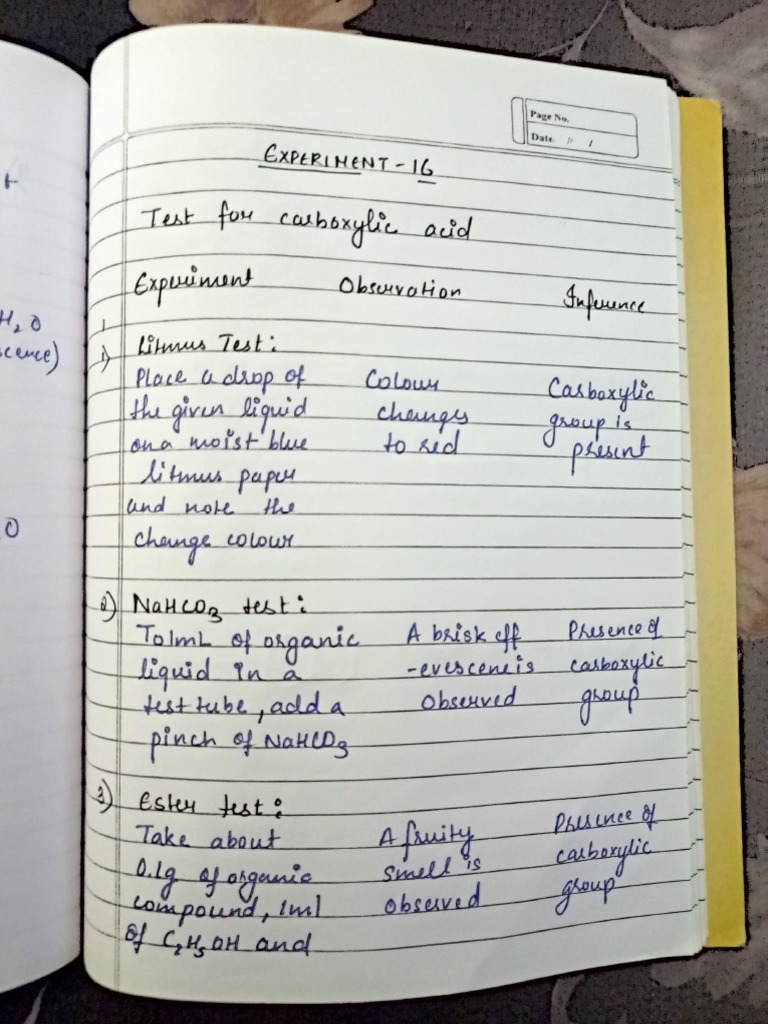 Page No.
Date / /
EXPERIMENT - 16
Test for carboxylic acid
Experiment Observation Inference
1) Litmus Test:
Place a drop of Colour Carboxylic
the given liquid changes group is
on a moist blue to red present
litmus paper
and note the
change colour
2) NaHCO3 test:
To 1mL of organic A brisk eff Presence of
liquid in a -evescene is carboxylic
test tube, add a observed group
pinch of NaHCO3
3) Ester test:
Take about A fruity Presence of
0.1g of organic smell is carboxylic
compound, 1ml observed group
of C2H5OH and
H2O
scence)
O